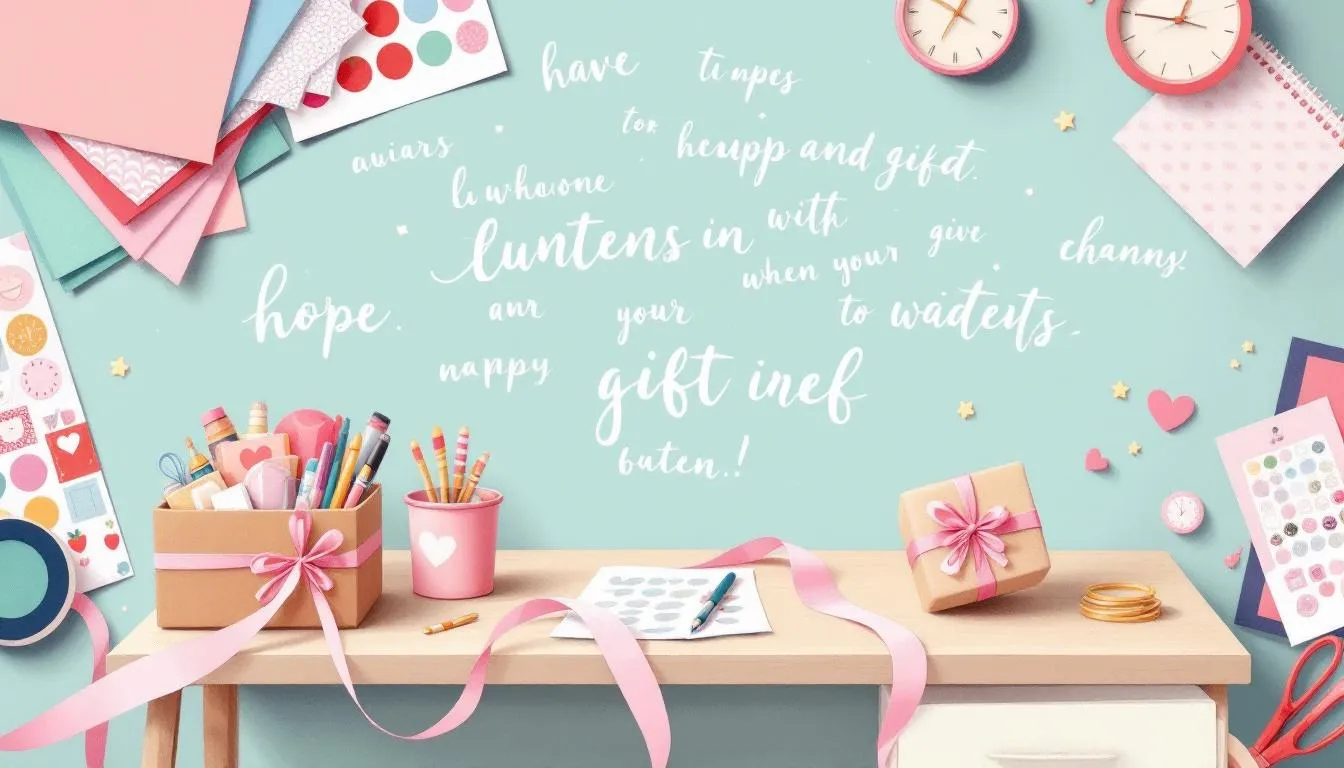 have
tumpes
for
auiars
heupp and gifdt.
lu whaone
luntens in
with
give
channy.
when your
hope.
anr
your
to wadeits.
nappy
gift inef
buten.!